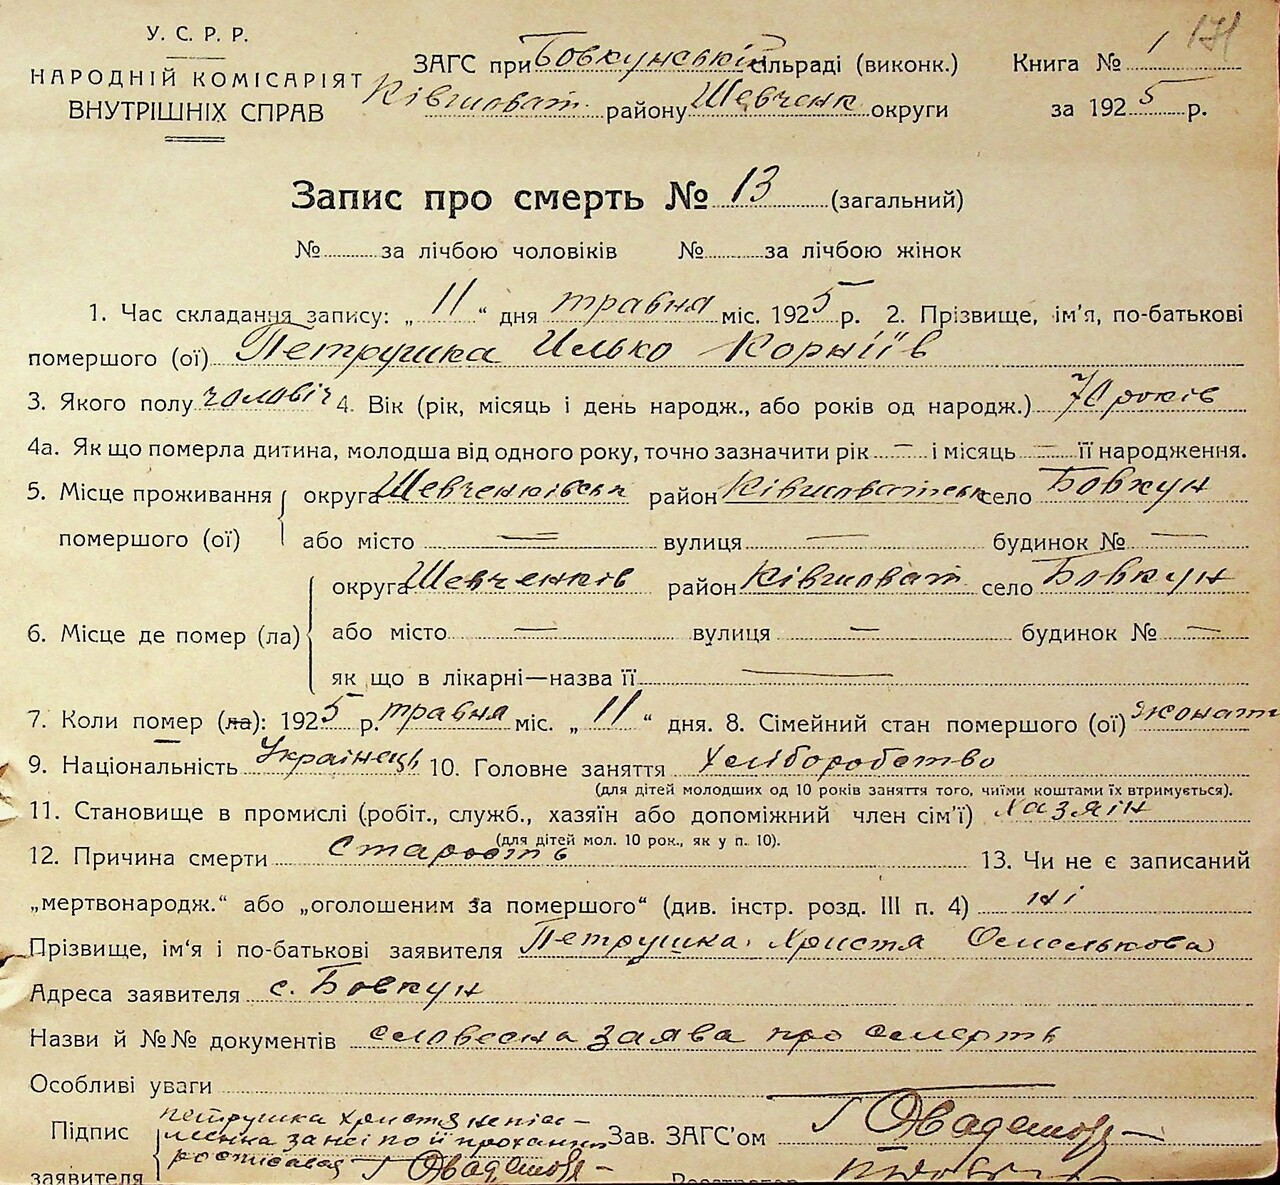 171
У. С. Р. Р.
НАРОДНІЙ КОМІСАРІЯТ
ВНУТРІШНІХ СПРАВ
ЗАГС при Бовкунський сільраді (виконк.)
Ківшоват. району Шевченк округи
Книга № 1
за 1925 р.
Запис про смерть № 13 (загальний)
№ за лічбою чоловіків № за лічбою жінок
1. Час складання запису: „ 11 “ дня травня міс. 1925 р. 2. Прізвище, ім'я, по-батькові
помершого (ої) Петрушка Илько Корніїв
3. Якого полу чоловіч 4. Вік (рік, місяць і день народж., або років од народж.) 70 років
4а. Як що померла дитина, молодша від одного року, точно зазначити рік — і місяць — її народження.
5. Місце проживання помершого (ої) округа Шевченківськ район Ківшоватськ село Бовкун
або місто — вулиця — будинок № —
6. Місце де помер (ла) округа Шевченків район Ківшоват село Бовкун
або місто — вулиця — будинок № —
як що в лікарні—назва її —
7. Коли помер (ла): 1925 р. травня міс. „ 11 “ дня. 8. Сімейний стан помершого (ої) жонат
9. Національність Українець 10. Головне заняття Хліборобство
(для дітей молодших од 10 років заняття того, чиїми коштами їх втримується).
11. Становище в промислі (робіт., служб., хазяїн або допоміжний член сім'ї) Хазяін
(для дітей мол. 10 рок., як у п. 10).
12. Причина смерти Старость 13. Чи не є записаний
„мертвонародж.“ або „оголошеним за помершого“ (див. інстр. розд. III п. 4) ні
Прізвище, ім'я і по-батькові заявителя Петрушка Христя Омелькова
Адреса заявителя с. Бовкун
Назви й №№ документів словесна заява про смерть
Особливі уваги
Підпис заявителя Петрушка Христя непісменна за неі по ії проханню
Зав. ЗАГС'ом
Реєстратор